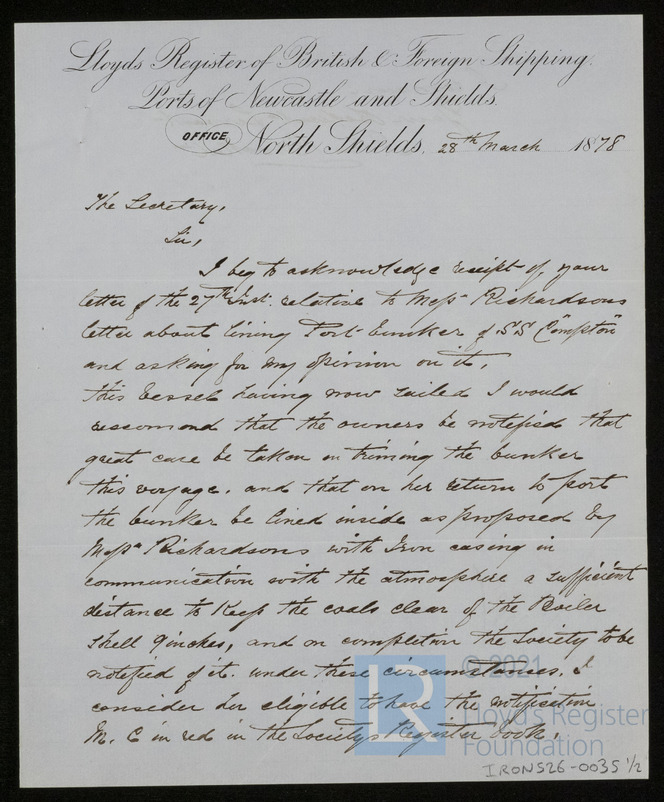 Lloyds Register of British & Foreign Shipping.
Ports of Newcastle and Shields.
OFFICE North Shields. 28th March 1878
The Secretary,
Sir,
I beg to acknowledge receipt of, your
letter of the 27th Inst. relative to Messrs Richardsons
letter about lining Port bunker of SS "Compton"
and asking for my opinion on it,
this vessel having now sailed I would
recommend that the owners be notified that
great care be taken in triming the bunker
this voyage. and that on her return to port
the bunker be lined inside as proposed by
Messrs Richardsons with Iron casing in
communication with the atmosphere a sufficient
distance to keep the coals clear of the Boiler
shell 9 inches, and on completion the Society to be
notified of it. under these circumstances. I
consider her eligible to have the notification
M. C in red in the Society's Register book.
© 2021
LR
Lloyd's Register
Foundation
IRON526-0035 1/2